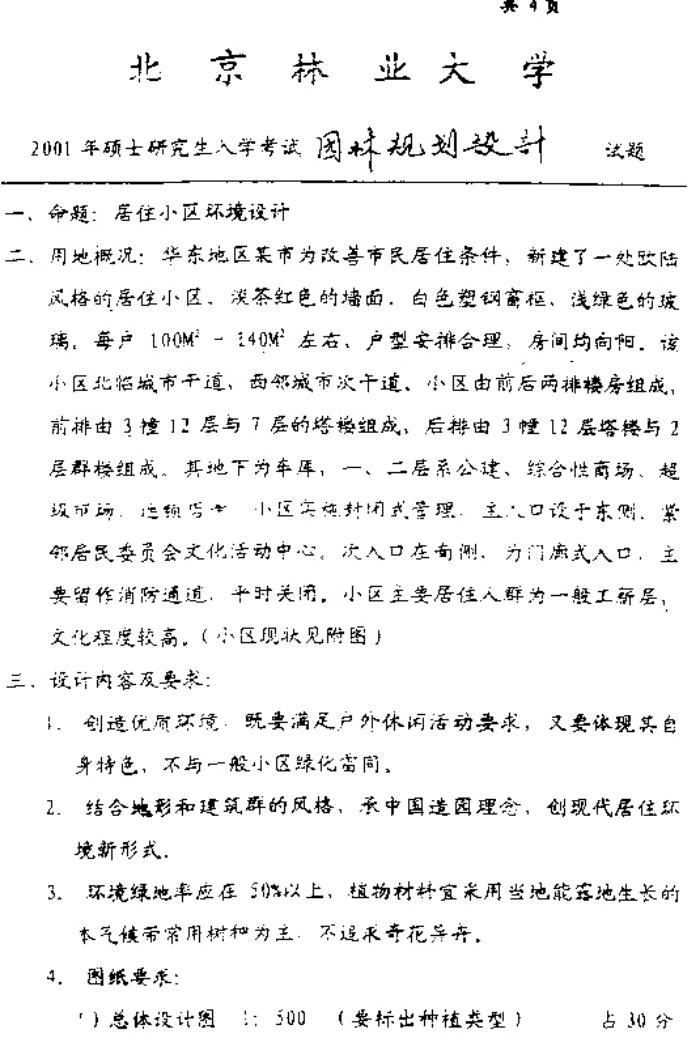 共 4 页
北京林业大学
2001 年硕士研究生入学考试 园林规划设计 试题
一、命题：居住小区环境设计
二、用地概况：华东地区某市为改善市民居住条件，新建了一处欧陆
风格的居住小区、淡茶红色的墙面、白色塑钢窗框、浅绿色的玻
璃。每户 100M² - 140M² 左右、户型安排合理，房间均向阳。该
小区北临城市干道、西邻城市次干道。小区由前后两排楼房组成，
前排由 3 幢 12 层与 7 层的塔楼组成，后排由 3 幢 12 层塔楼与 2
层群楼组成。其地下为车库，一、二层系公建、综合性商场、超
级市场、连锁店 小区实施封闭式管理 主入口设于东侧、紧
邻居民委员会文化活动中心。次入口在南侧、为门廊式入口、主
要留作消防通道，平时关闭。小区主要居住人群为一般工薪层，
文化程度较高。（小区现状见附图）
三、设计内容及要求：
1. 创造优质环境，既要满足户外休闲活动要求，又要体现其自
身特色、不与一般小区绿化雷同、
2. 结合地形和建筑群的风格、承中国造园理念，创现代居住环
境新形式.
3. 环境绿地率应在 50%以上，植物材料宜采用当地能露地生长的
本气候带常用树种为主，不追求奇花异卉。
4. 图纸要求：
1）总体设计图 1：500 （要标出种植类型） 占 30 分